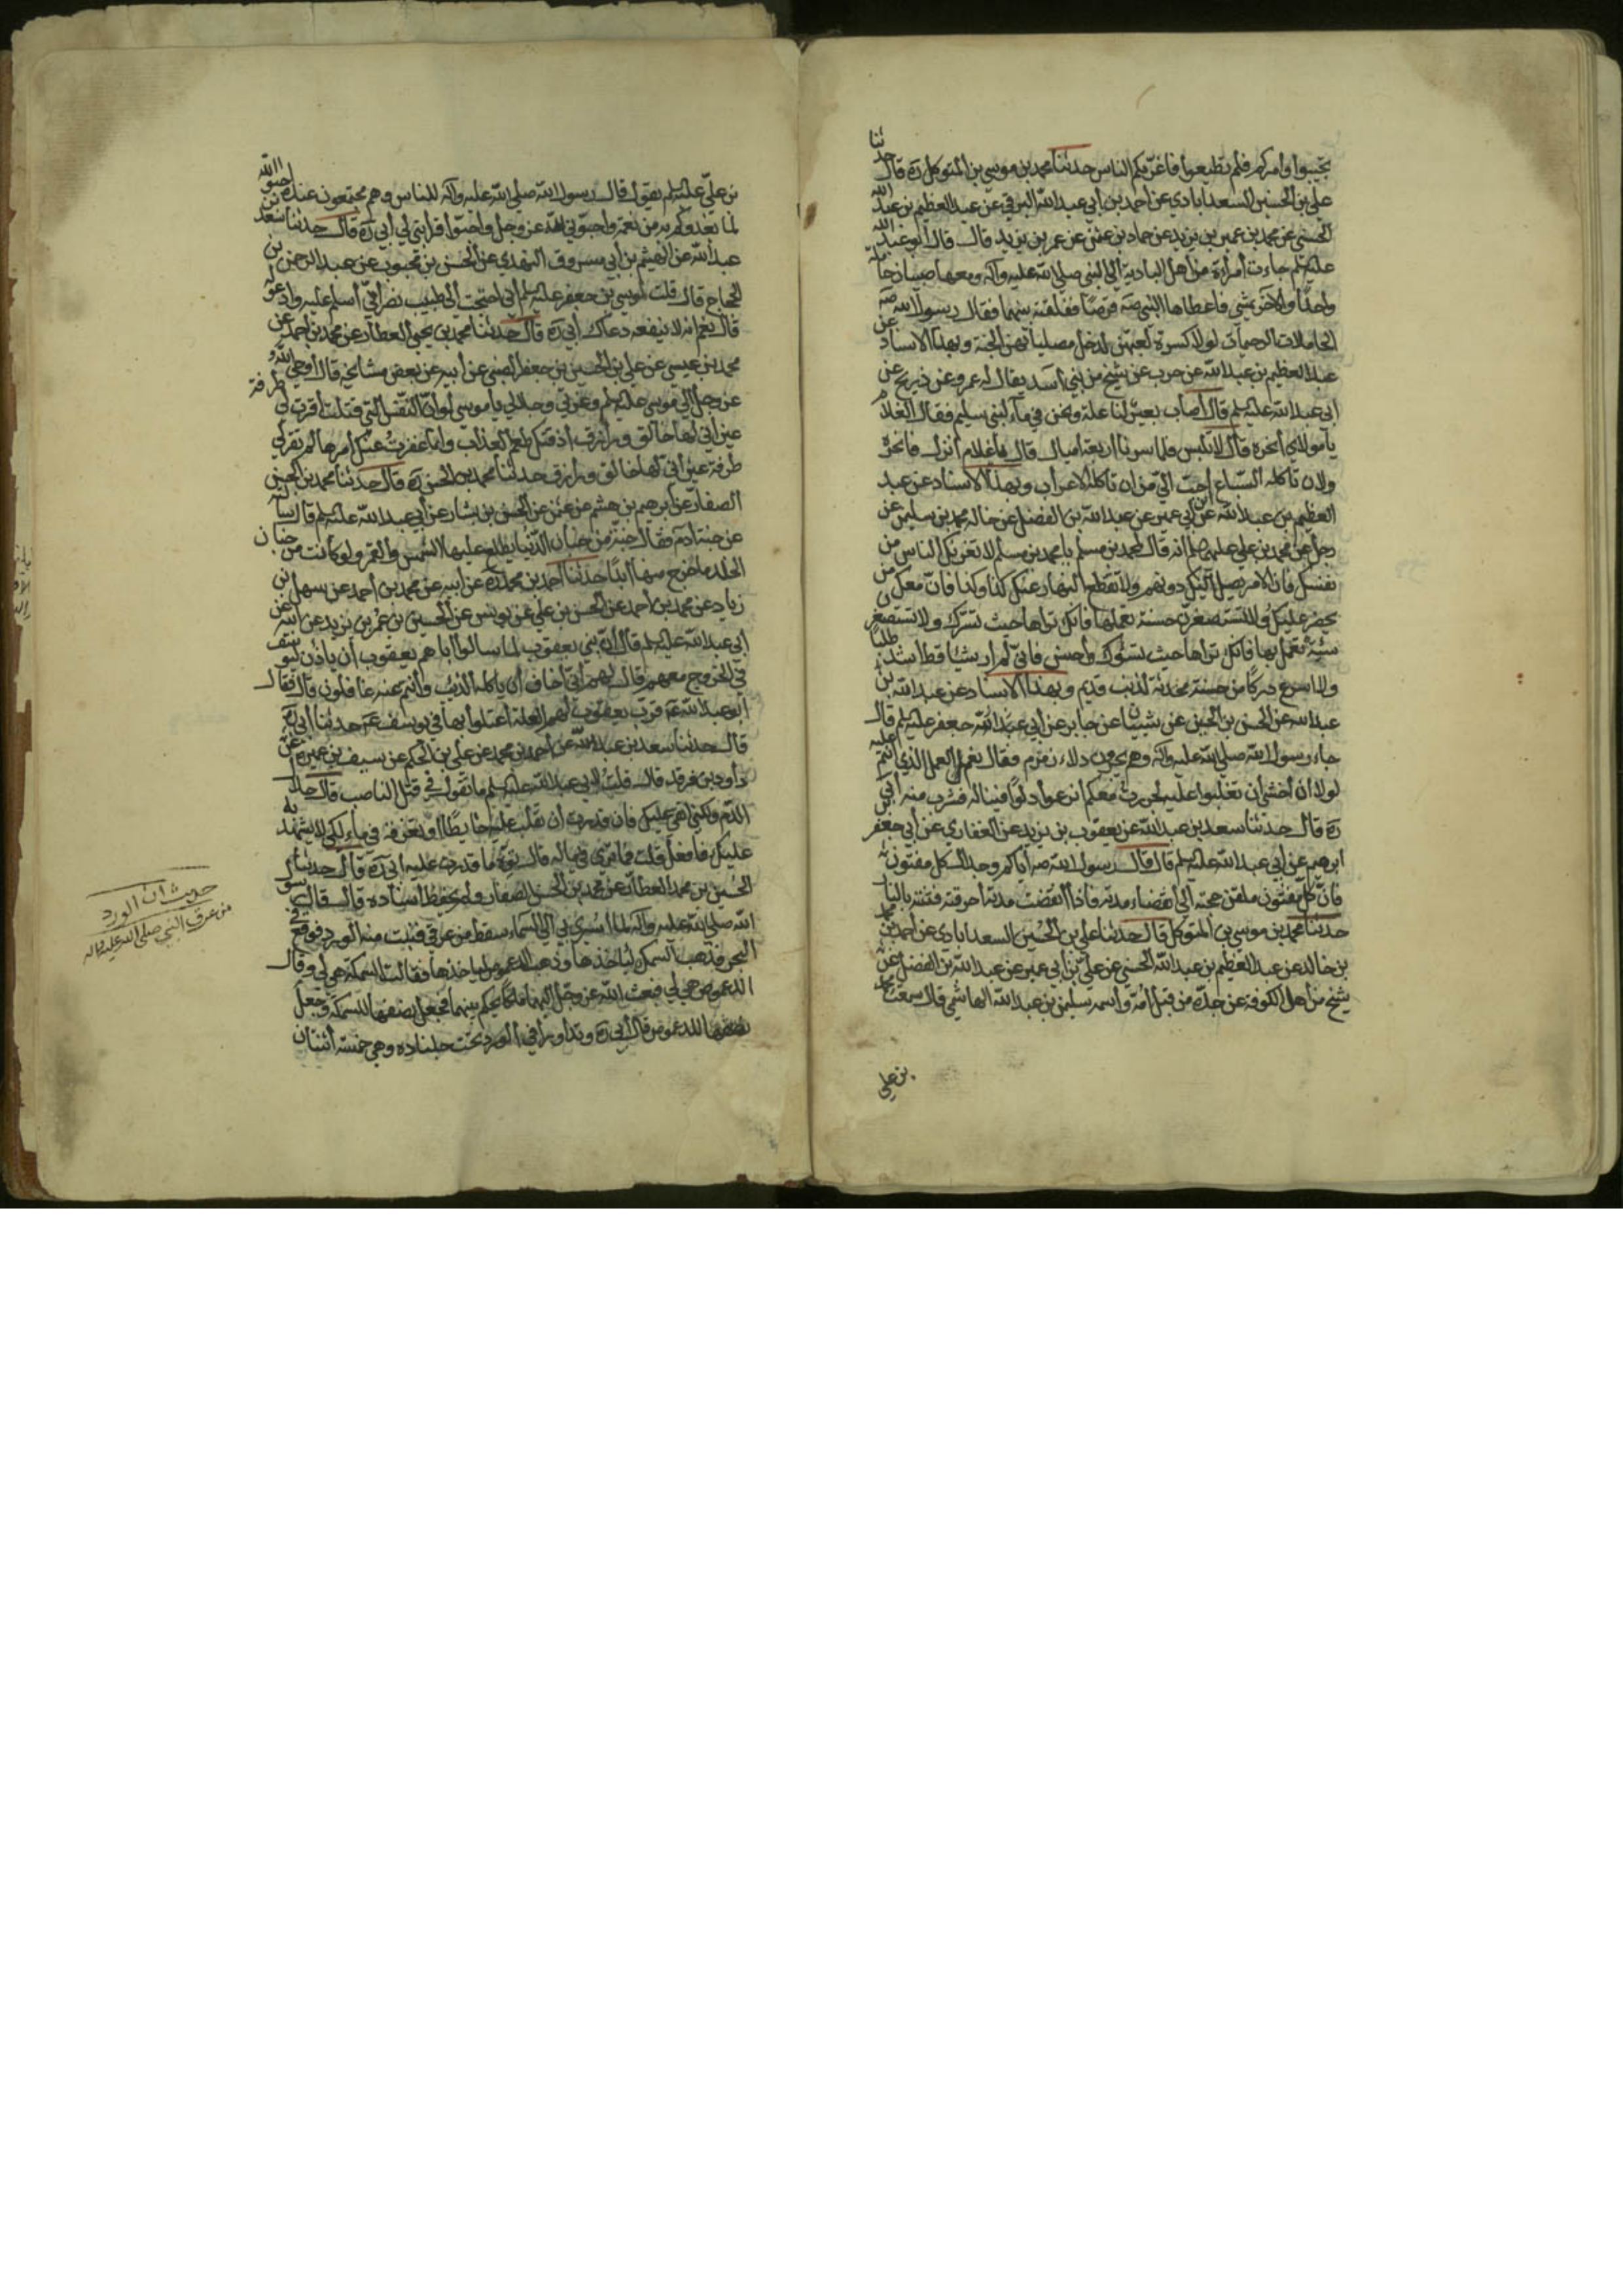 تجيبوا وامركم فلم تطيعوا فاغرّيكم الناس حدثنا محمد بن موسى بن المتوكل ره قال حدثنا
علي بن الحسين السعدابادي عن احمد بن أبي عبد الله البرقي عن عبد العظيم بن عبد الله
الحسني عن محمد بن عمر بن يزيد عن حماد بن عثمن عن عمر بن يزيد قال قال أبو عبد الله
عليه السلم جاءت أمرأة من أهل البادية الى النبي صلى الله عليه وآله ومعها صبيان حاملة
واحدًا والآخر يمشي فاعطاها النبي صه قرصًا ففلقته بينهما فقال رسول الله صه
الحاملات الرحيمات لولا كسرة لعبهن لدخل مصلياتهن الجنة وبهذا الاسناد عن
عبد العظيم بن عبد الله عن حرب عن شيخ من بني أسد يقال له عمرو عن ذريح عن
ابي عبد الله عليه السلم قال أصاب بعير لنا علة ونحن في ماء لبني سليم فقال الغلام
يا مولاي أنحره قال لا تلبس فلما سرنا اربعة اميال قال يا غلام أنزل فانحره
ولان تاكله السباع احب الي من ان تاكله الاعراب وبهذا الاسناد عن عبد
العظيم بن عبد الله عن ابن أبي عمير عن عبد الله بن الفضل عن خاله محمد بن سليمن عن
رجل عن محمد بن علي عليهما السلم انه قال لمحمد بن مسلم يا محمد بن مسلم لا تغرنك الناس من
نفسك فان الامر يصل اليك دونهم ولا تقطع النهار عنك كذا وكذا فان معك من
يحصي عليك ولا تستصغرن حسنة تعملها فانك تراها حيث تسرك ولا تستصغر
سيئة تعمل بها فانك تراها حيث تسؤك وأحسن فاني لم ار شيئا قط اشد طلبًا
ولا اسرع دركًا من حسنة محدثة لذنب قديم وبهذا الاسناد عن عبد الله بن
عبد الله عن الحسن بن الحسين عن شيبان عن جابر عن أبي عبد الله جعفر عليه السلم قال
جاء رسول الله صلى الله عليه وآله وهم يجرون دلاء زمزم فقال نعم العمل الذي انتم عليه
لولا ان أخشى ان تغلبوا عليه لجررت معكم انزعوا دلوًا فيناله فشرب منه أبي
ره قال حدثنا سعد بن عبد الله عن يعقوب بن يزيد عن الغفاري عن أبي جعفر بن
ابرهيم عن ابي عبد الله عليه السلم قال قال رسول الله صه اياكم وجدال كل مفتون
فان كل مفتون ملقن حجته الى انقضاء مدته فاذا انقضت مدته أحرقته فتنته بالنار
حدثنا محمد بن موسى بن المتوكل قال حدثنا علي بن الحسين السعدابادي عن احمد بن محمد
بن خالد عن عبد العظيم بن عبد الله الحسني عن علي بن ابي عمير عن عبد الله بن الفضل عن
شيخ من اهل الكوفة عن جده من قبل أمه واسمه سليمن بن عبد الله الهاشمي قال سمعت محمد
بن علي
بن علي عليه السلم يقول قال رسول الله صلى الله عليه وآله للناس وهم مجتمعون عنده احبوا الله
لما يغدوكم به من نعمة واحبوني لله عز وجل وأحبوا قرابتي لي أبي ره قال حدثنا سعد بن
عبد الله عن الهيثم بن أبي مسروق النهدي عن الحسن بن محبوب عن عبد الرحمن بن
الحجاج قال قلت لموسى بن جعفر عليه السلم أني احتجت الى طبيب نصراني أسلم عليه وادعو له
قال نعم انه لا ينفعه دعاك أبي ره قال حدثنا محمد بن يحيى العطار عن محمد بن احمد عن
محمد بن عيسى عن علي بن الحسين بن جعفر الضبي عن أبيه عن بعض مشايخه قال أوحى الله
عز وجل الى موسى عليه السلم وعزتي وجلالي يا موسى لو ان النفس التي قتلت أقرت لي طرفة
عين اني لها خالق ورازق أذقتك طعم العذاب وانما عفوت عنك أمرها لم تقر لي
طرفة عين أني لها خالق ورازق حدثنا محمد بن الحسن ره قال حدثنا محمد بن الحسن
الصفار عن ابرهيم بن هشم عن عثمن عن الحسن بن بشار عن أبي عبد الله عليه السلم قال سألته
عن جنة ادم فقال جنة من جنان الدنيا يطلع عليها الشمس والقمر ولو كانت من جنان
الخلد ما خرج منها ابدًا حدثنا احمد بن محمد ره عن ابيه عن محمد بن احمد عن سهل بن
زياد عن محمد بن أحمد عن الحسن بن علي عن يونس عن الحسين بن عمر بن يزيد عن ابيه عن
ابي عبد الله عليه السلم قال ان بني يعقوب لما سالوا اباهم يعقوب أن ياذن ليوسف
في الخروج معهم قال لهم أني أخاف أن ياكله الذئب وانتم عنه غافلون قال فقال
ابو عبد الله عه قرب يعقوب لهم العلة اعتلوا بها في يوسف عه حدثنا أبي ره
قال حدثنا سعد بن عبد الله عن أحمد بن محمد عن علي بن الحكم عن سيف بن عميرة عن
داود بن فرقد قال قلت لابي عبد الله عليه السلم ما تقول في قتل الناصب قال حلال
الدم ولكني اتقي عليك فان قدرت أن تقلب عليه حايطًا او تغرقه في ماء لكي لا يشهد به
عليك فافعل قلت فما ترى في ماله قال توه ما قدرت عليه ابي ره قال حدثنا
الحسين بن محمد العطار عن محمد بن الحسن الصفار ولم يحفظ اسناده قال قال رسول
الله صلى الله عليه وآله لما أسري بي الى السماء سقط من عرقي فنبتت منه الورد فوقع في
البحر فذهب السمك لياخذها وذهب الدعموص لياخذها فقالت السمكة هي لي وقال
الدعموص هي لي فبعث الله عز وجل اليهما ملكًا يحكم بينهما فجعل نصفها للسمكة وجعل
نصفها للدعموص قال أبي ره وترا اوراق الورد تحت جلناره وهي خمسة أثنتان
حديث ان الورد
من عرق النبي صلى الله عليه واله